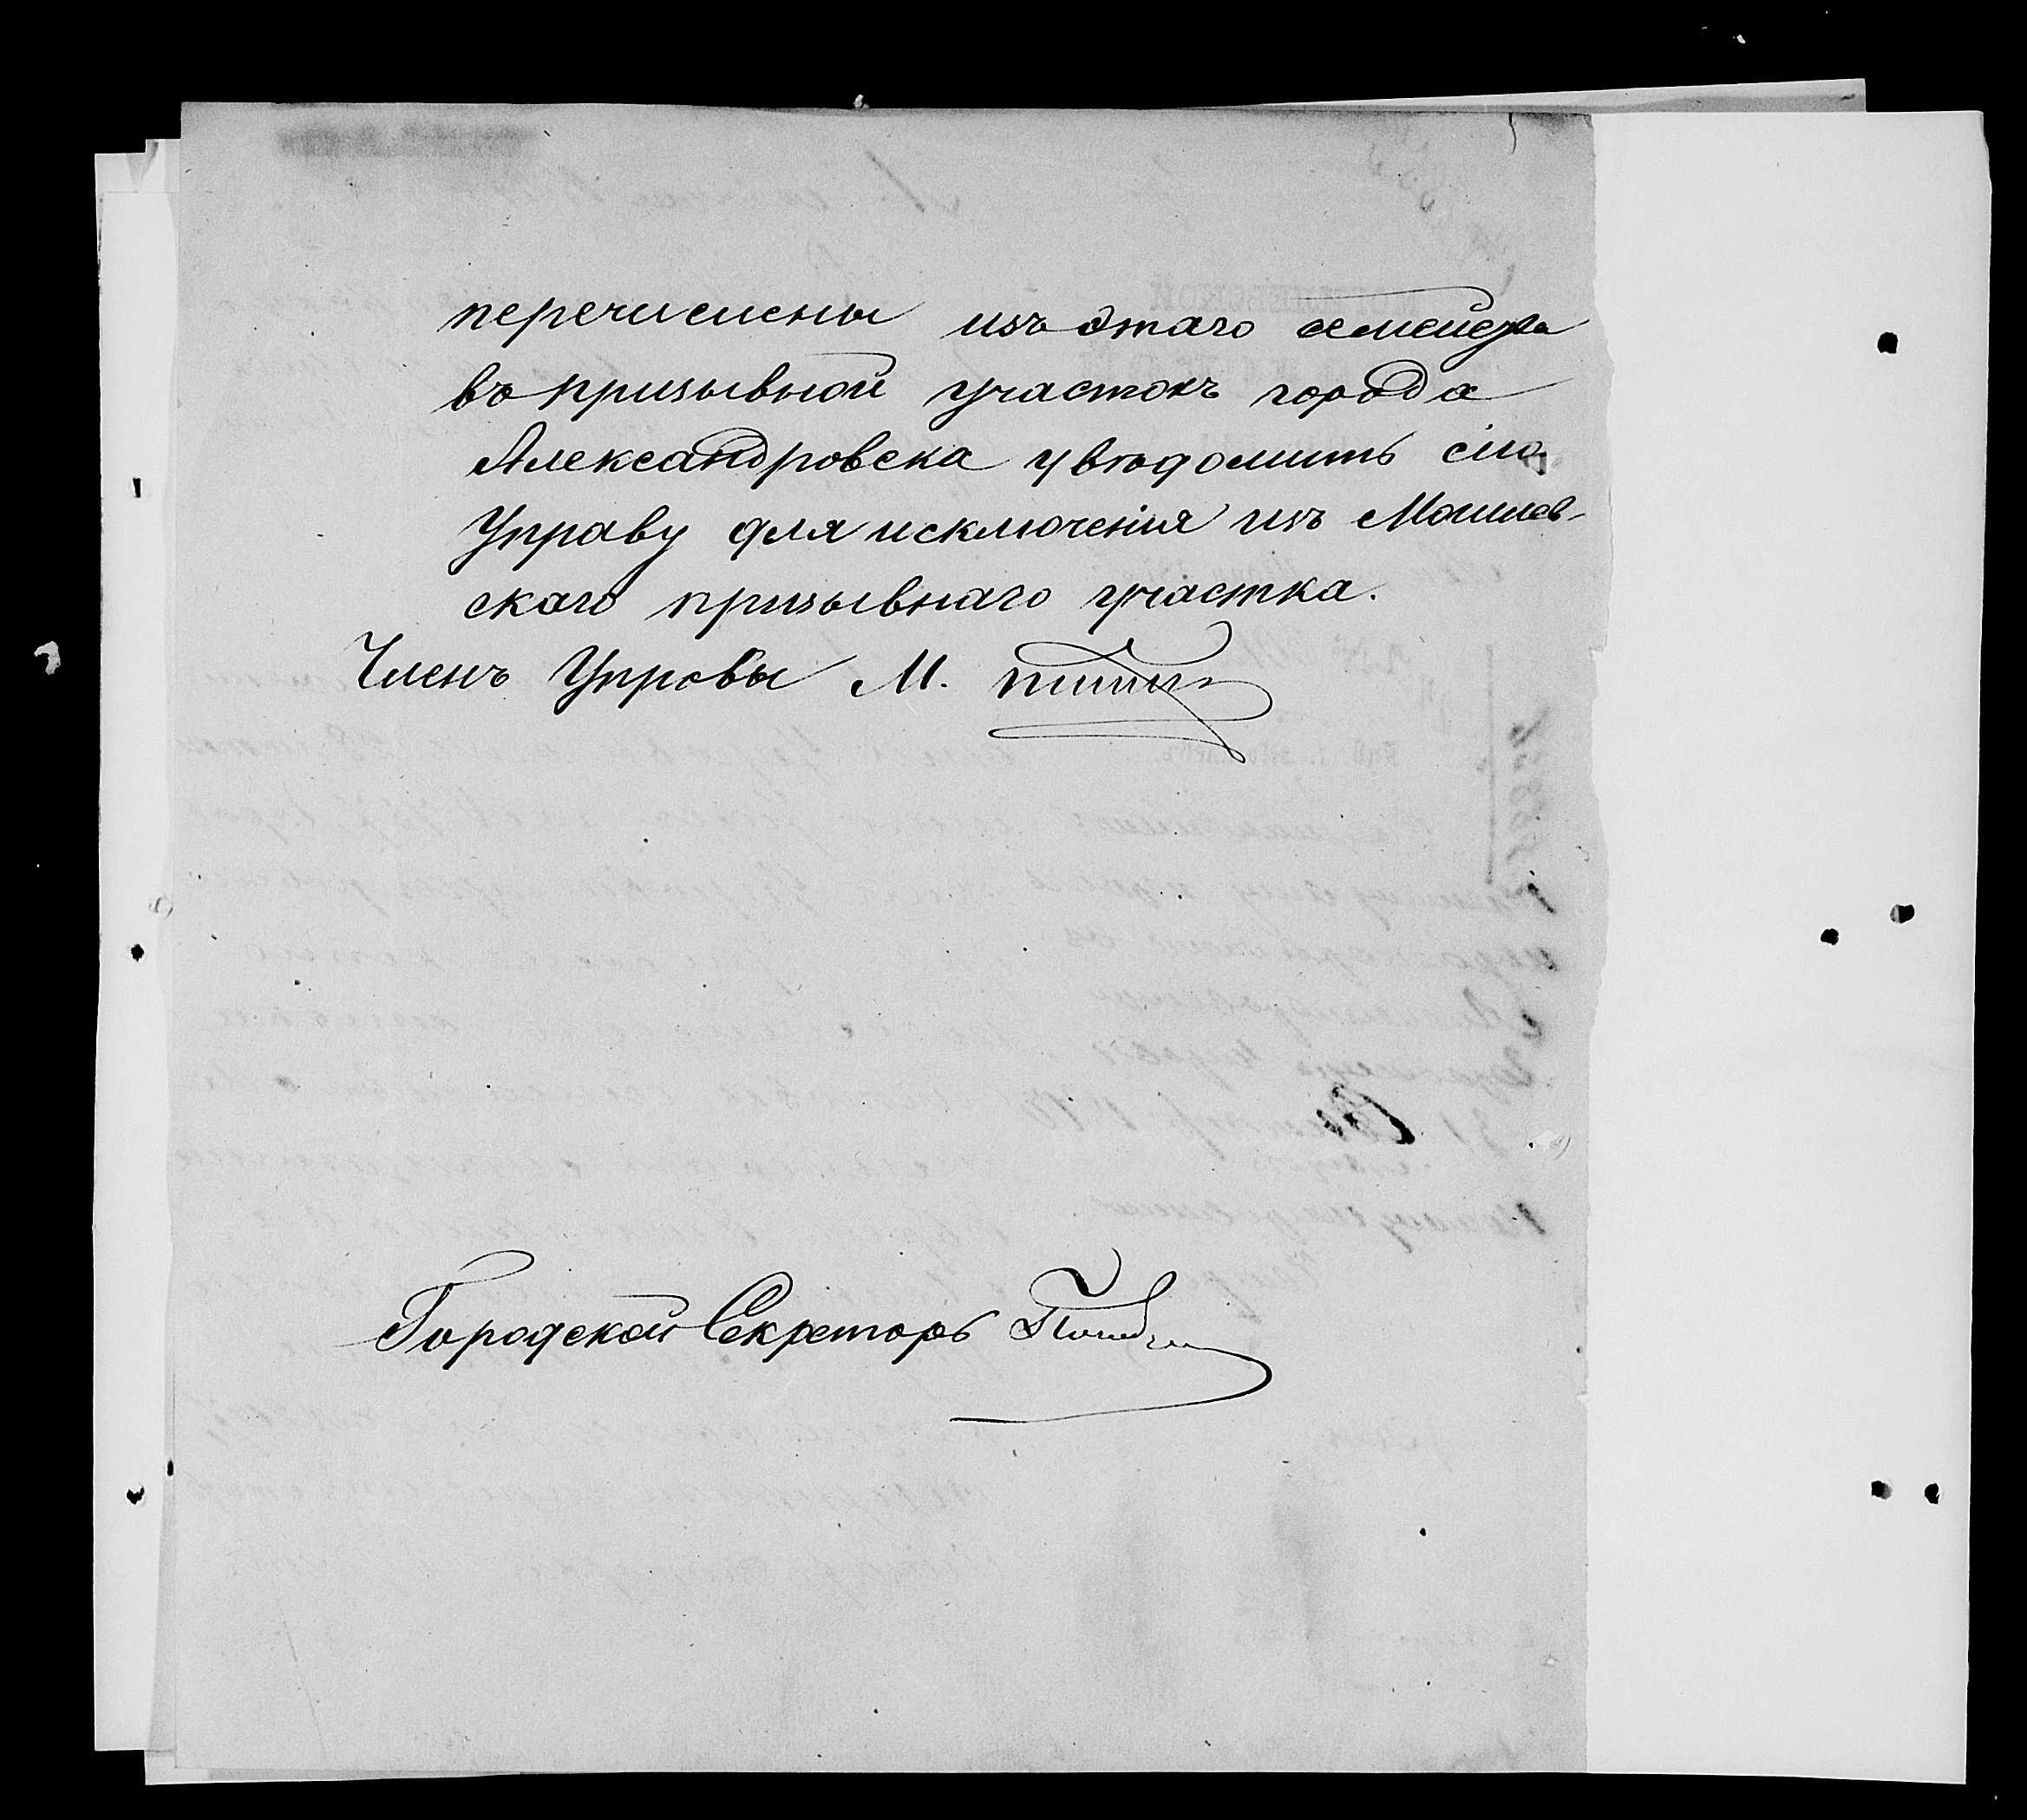 перечислены изъ этаго семейства
въ призывной участокъ города
Александровска увѣдомить сію
Управу для исключенія изъ Могилев-
скаго призывнаго участка.
Членъ Управы М.
Городской Секретарь